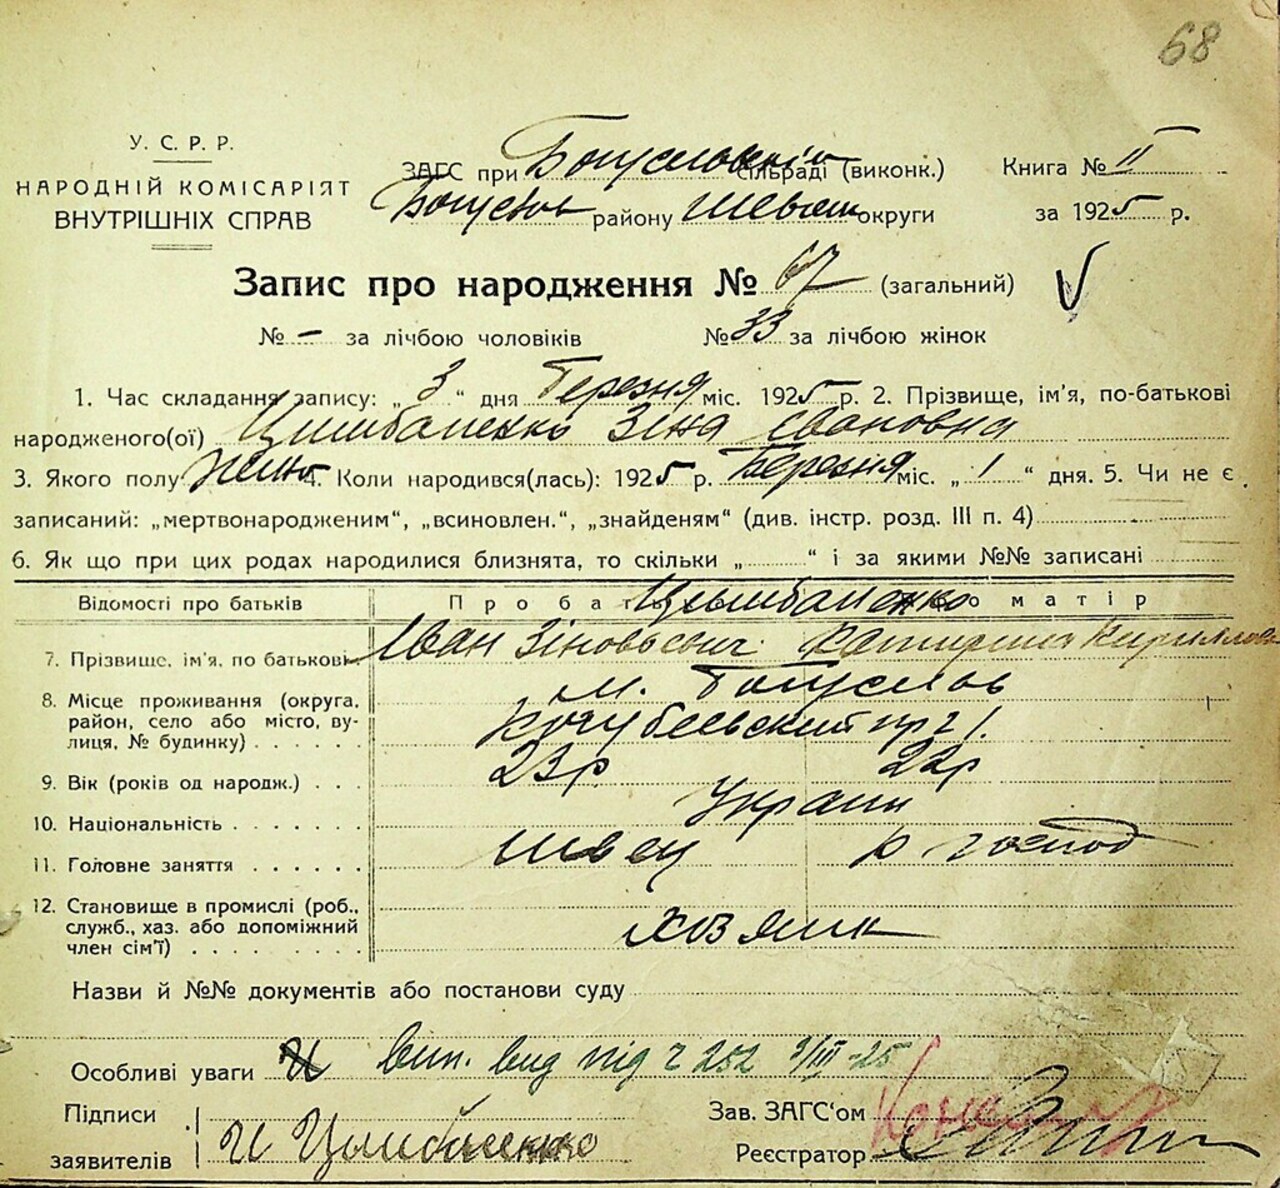 68
У. С. Р. Р.
НАРОДНІЙ КОМІСАРІЯТ
ВНУТРІШНІХ СПРАВ
ЗАГС при Богуславській сільраді (виконк.)
Богуслов району Шевчен округи
Книга № II
за 1925 р.
Запис про народження № 67 (загальний)
№ – за лічбою чоловіків № 33 за лічбою жінок
1. Час складання запису: „ 3 “ дня Березня міс. 1925 р. 2. Прізвище, ім'я, по-батькові
народженого(ої) Цимбаленко Зіна Івановна
3. Якого полу жіно 4. Коли народився(лась): 1925 р. Березня міс. „ 1 “ дня. 5. Чи не є
записаний: „мертвонародженим“, „всиновлен.“, „знайденям“ (див. інстр. розд. III п. 4)
6. Як що при цих родах народилися близнята, то скільки „ “ і за якими №№ записані
Відомості про батьків Про батька Цымбаленко Про матір
7. Прізвище, ім'я, по батькові Іван Зіновьевич Катерина Кирилловна
8. Місце проживання (округа, м. Богуслов
район, село або місто, ву- Кочубеевский пр ч 1.
лиця, № будинку)
9. Вік (років од народж.) 23р 22р
10. Національність Украин
11. Головне заняття швец господ
12. Становище в промислі (роб.,
служб., хаз. або допоміжний хозяин
член сім'ї)
Назви й №№ документів або постанови суду
Особливі уваги вип. вид під ч 252 3/III-25
Підписи
заявителів И Цымбаленко
Зав. ЗАГС'ом
Реєстратор